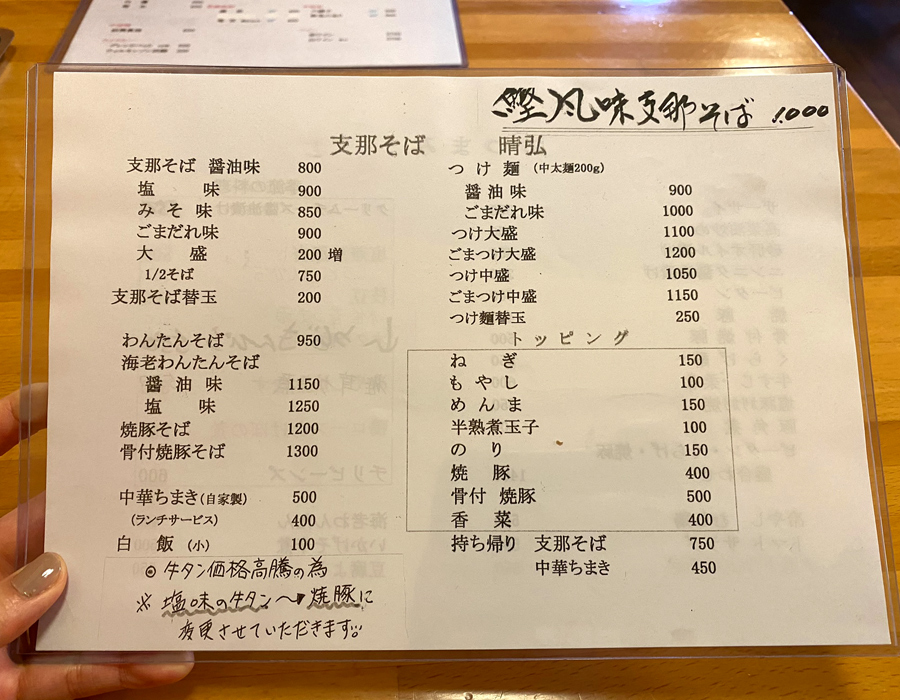 鰹風味支那そば 1,000
支那そば 晴弘
支那そば 醤油味 800
塩味 900
みそ味 850
ごまだれ味 900
大盛 200 増
1/2そば 750
支那そば替玉 200
わんたんそば 950
海老わんたんそば
醤油味 1150
塩味 1250
焼豚そば 1200
骨付焼豚そば 1300
中華ちまき(自家製) 500
(ランチサービス) 400
白飯 (小) 100
◎ 牛タン価格高騰の為
※ 塩味の牛タン〜→焼豚に
変更させていただきます。
つけ麺 (中太麺200g)
醤油味 900
ごまだれ味 1000
つけ大盛 1100
ごまつけ大盛 1200
つけ中盛 1050
ごまつけ中盛 1150
つけ麺替玉 250
トッピング
ねぎ 150
もやし 100
めんま 150
半熟煮玉子 100
のり 150
焼豚 400
骨付 焼豚 500
香菜 400
持ち帰り 支那そば 750
中華ちまき 450